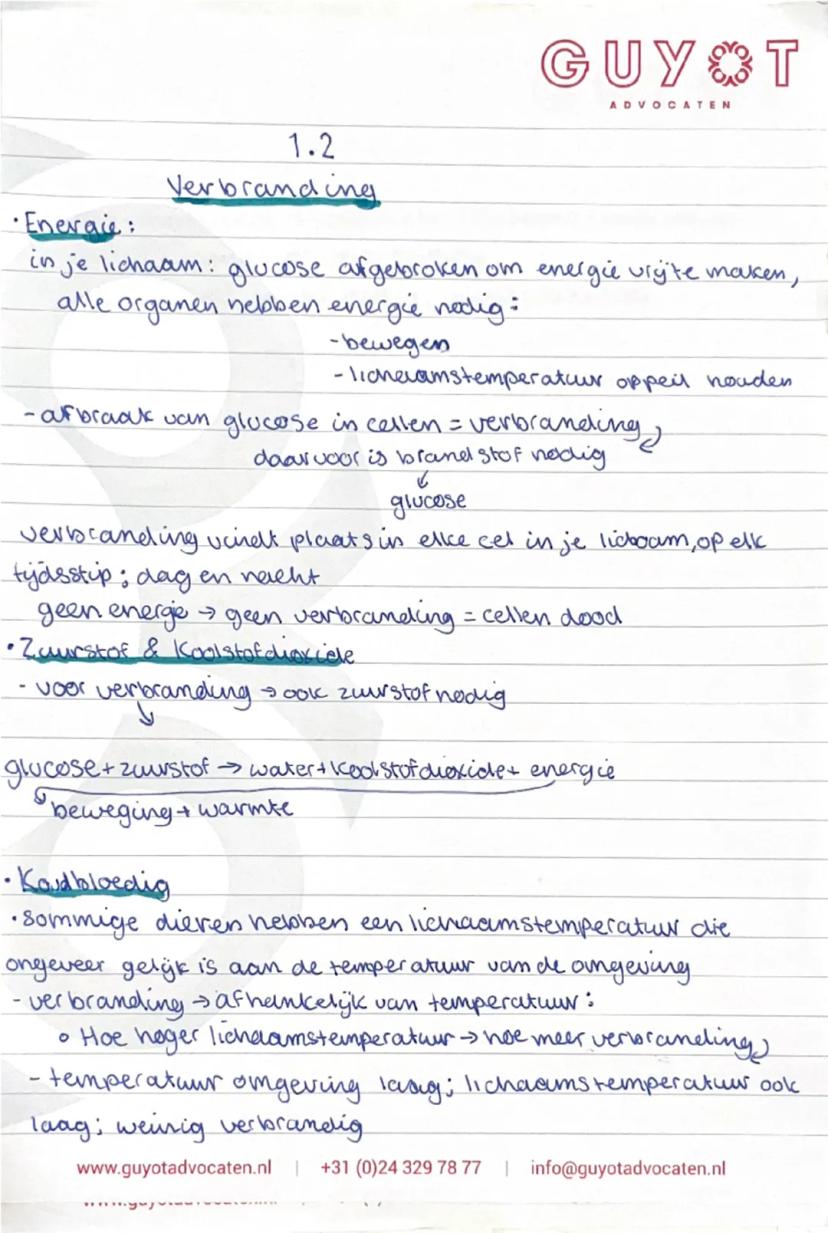 GUYOT
ADVOCATEN
1.2
Verbranding
· Energie:
in je lichaam: glucose afgebroken om energie vrij te maken,
alle organen hebben energie nodig:
- bewegen
- lichaamstemperatuur op peil houden
- afbraak van glucose in cellen = verbranding
daarvoor is brandstof nodig
↓
glucose
verbranding vindt plaats in elke cel in je lichaam, op elk
tijdsstip; dag en nacht
geen energie → geen verbranding = cellen dood
· Zuurstof & Koolstofdioxide
- voor verbranding → ook zuurstof nodig
↓
glucose + zuurstof → water + koolstofdioxide + energie
beweging + warmte
· Koudbloedig
· sommige dieren hebben een lichaamstemperatuur die
ongeveer gelijk is aan de temperatuur van de omgeving
- verbranding → afhankelijk van temperatuur:
o Hoe hoger lichaamstemperatuur → hoe meer verbranding
- temperatuur omgeving laag; lichaamstemperatuur ook
laag; weinig verbrandig
www.guyotadvocaten.nl | +31 (0)24 329 78 77 | info@guyotadvocaten.nl